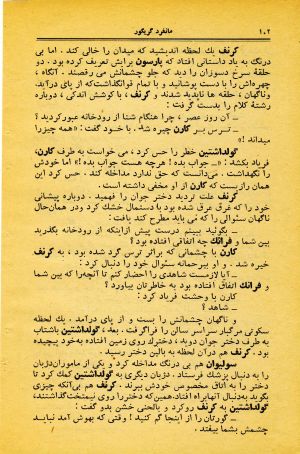 ۱۰۲ مانفرد گریگور
گرنف یك لحظه اندیشید که میدان را خالی کند. اما بی
درنگ به یاد داستانی افتاد که پارسون برایش تعریف کرده بود. دو
حلقه سرخ دسوزان را دید که جلو چشمانش می رقصند. آنگاه،
چهره‌اش را با دست پوشانید و با تمام توانگذاشت‌که از پای درآید.
وناگهان، حلقه ها ناپدید شدند و گرنف، با کوشش اندکی، دوباره
رشته کلام را بدست گرفت:
ـ آن روز عصر، چرا هنگام شنا از رودخانه عبورکردید؟
ـ ترس بر کارن چیره شد. با خود گفت: «همه چیز را
میداند!»
گولداشتین خطر را حس کرد، می خواست به طرف کارن،
فریاد بکشد: «ـ جواب بده! هرچه هست جواب بده!» اما خودش
را نگهداشت. می‌دانست که حق ندارد مداخله کند. حس کرد این
همان رازیست که کارن از او مخفی داشته است.
گرنف علت تردید دختر جوان را فهمید. دوباره پیشانی
خود را که غرق عرق شده بود با دستمال خشك کرد ودر همان‌حال
ناگهان سئوالی را که می باید مطرح کند یافت:
ـ بگوئید ببینم درست پیش ازاینکه از رودخانه بگذرید
بین شما و فرانك چه اتفاقی افتاده بود؟
کارن با چشمانی که براثر ترس گرد شده بود، به گرنف
خیره شد. و او بیرحمانه سئوال خود را دنبال کرد:
ـ آیا لازمست شاهدی را احضار کنم تا آنچه‌را که بین شما
و فرانك اتفاق افتاده بود به خاطرتان بیاورد؟
کارن با وحشت فریاد کرد:
ـ شاهد؟
و ناگهان چشمانش را بست و از پای درآمد. یك لحظه
سکوتی مرگبار سراسر سالن را فراگرفت. بعد، گولداشتین باشتاب
به طرف دختر جوان دوید، دخترک روی زمین افتاده به‌خود پیچیده
بود. گرنف هم درآن لحظه به بالین دختر رسید.
سولیوان هم بی درنگ مداخله کرد و یکی از ماموران‌دژبان
را به دنبال پزشك فرستاد. دژبان دیگری به گولداشتین کمك کرد تا
دختر را به اتاق مخصوص خودش ببرند. گرنف هم بی‌آنکه چیزی
بگوید به‌دنبال آنهابراه افتاد.همین‌که دختررا روی نیمتخت‌گذاشتند،
گولداشتین به گرنف روکرد و بالحنی خشن بدو گفت:
ـ گورتان را از اینجا گم کنید! وقتی که بهوش آمد نباید
چشمش بشما بیفتد.